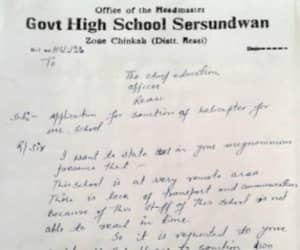 Office of the Headmaster
Govt High School Sersundwan
Zone Chinkah (Distt. Reasi)
To
The chief education
officer
Reasi
Sub:- Application for sanction of helicopter for
school
R/Sir
I want to state that in your
presence that -
This school is at very remote area
There is lack of transport and communication
Because of this staff of this school is not
able to reach in time.
So it is requested to your